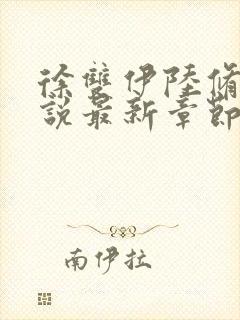 徐雙伊陸脩
說最新章節
南伊拉